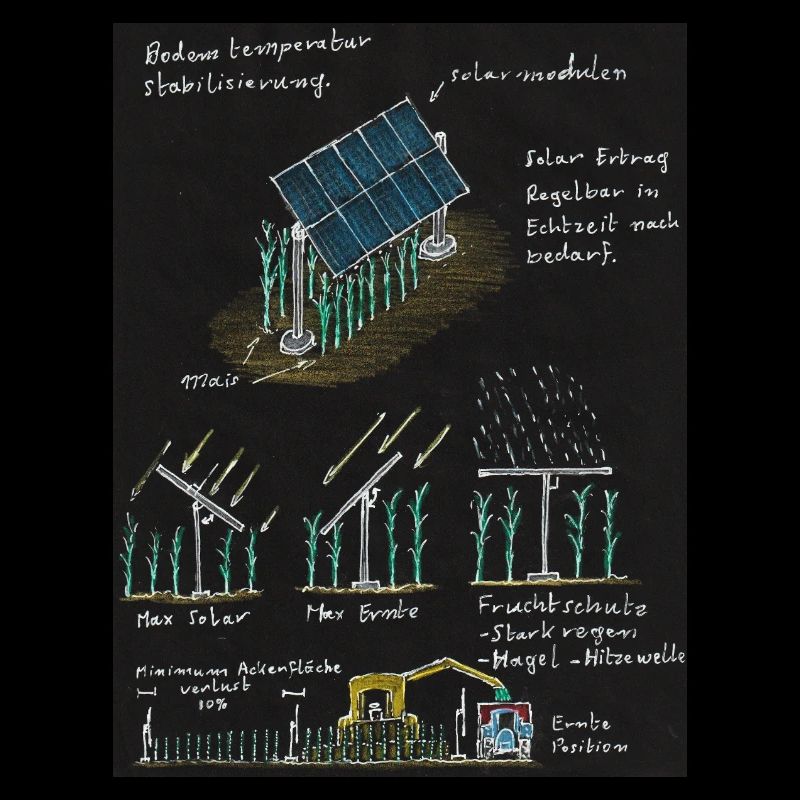 Bodem temperatur
stabilisierung.
solar-modulen
Solar Ertrag
Regelbar in
Echtzeit nach
bedarf.
Mais
Max Solar
Max Ernte
Fruchtschutz
-Starkregen
-Hagel -Hitzewelle
Minimum Ackenfläche
verlust
10%
Ernte
Position